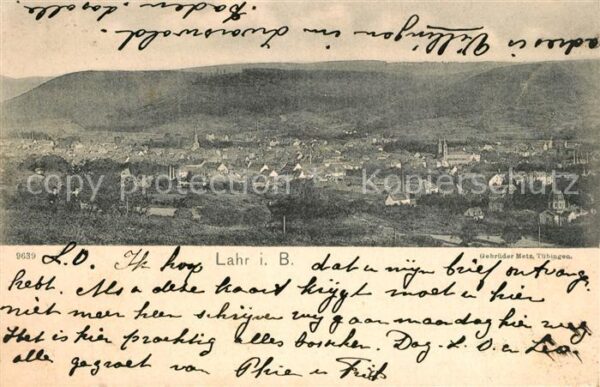 adres is Villingen im Zwarswald.
Baden.
copyright Kopierschutz
9639 Lahr i. B. Gebrüder Metz, Tübingen.
L.O. Ik hoop dat u mijn brief ontvangen
hebt. Als u deze kaart krijgt moet u hier
niet meer heen schrijven wij gaan maandag hier weg
Het is hier prachtig alles bosschen. Dag L.O. en Leo
alle gegroet van Phie en Frits